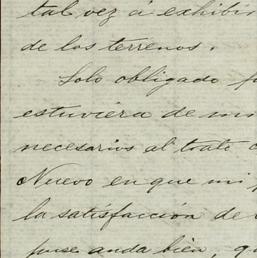 tal vez á exhibir
de los terrenos.
Solo obligado
estuviera de
necesarios al trato
Nuevo en que mi
la satisfacción de
puse anda bien,